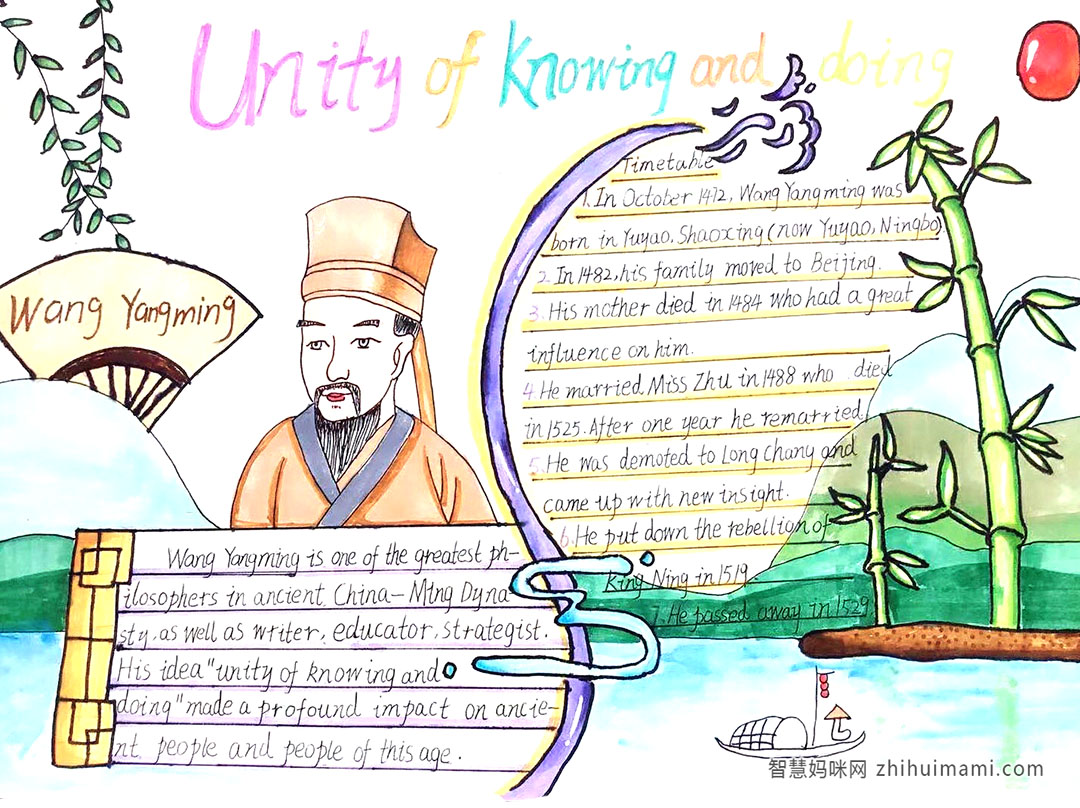 Unity of Knowing and doing
Wang Yangming
Timetable
1. In October 1472, Wang Yangming was
born in Yuyao, Shaoxing (now Yuyao, Ningbo)
2. In 1482, his family moved to Beijing.
3. His mother died in 1484 who had a great
influence on him.
4. He married Miss Zhu in 1488 who died
in 1525. After one year he remarried
5. He was demoted to Long Chang and
came up with new insight.
6. He put down the rebellion of
King Ning in 1519.
7. He passed away in 1529
Wang Yangming is one of the greatest ph-
ilosophers in ancient China - Ming Dyna
sty, as well as writer, educator, strategist.
His idea "unity of knowing and
doing" made a profound impact on ancie-
nt people and people of this age.
智慧妈咪网 zhihuimami.com